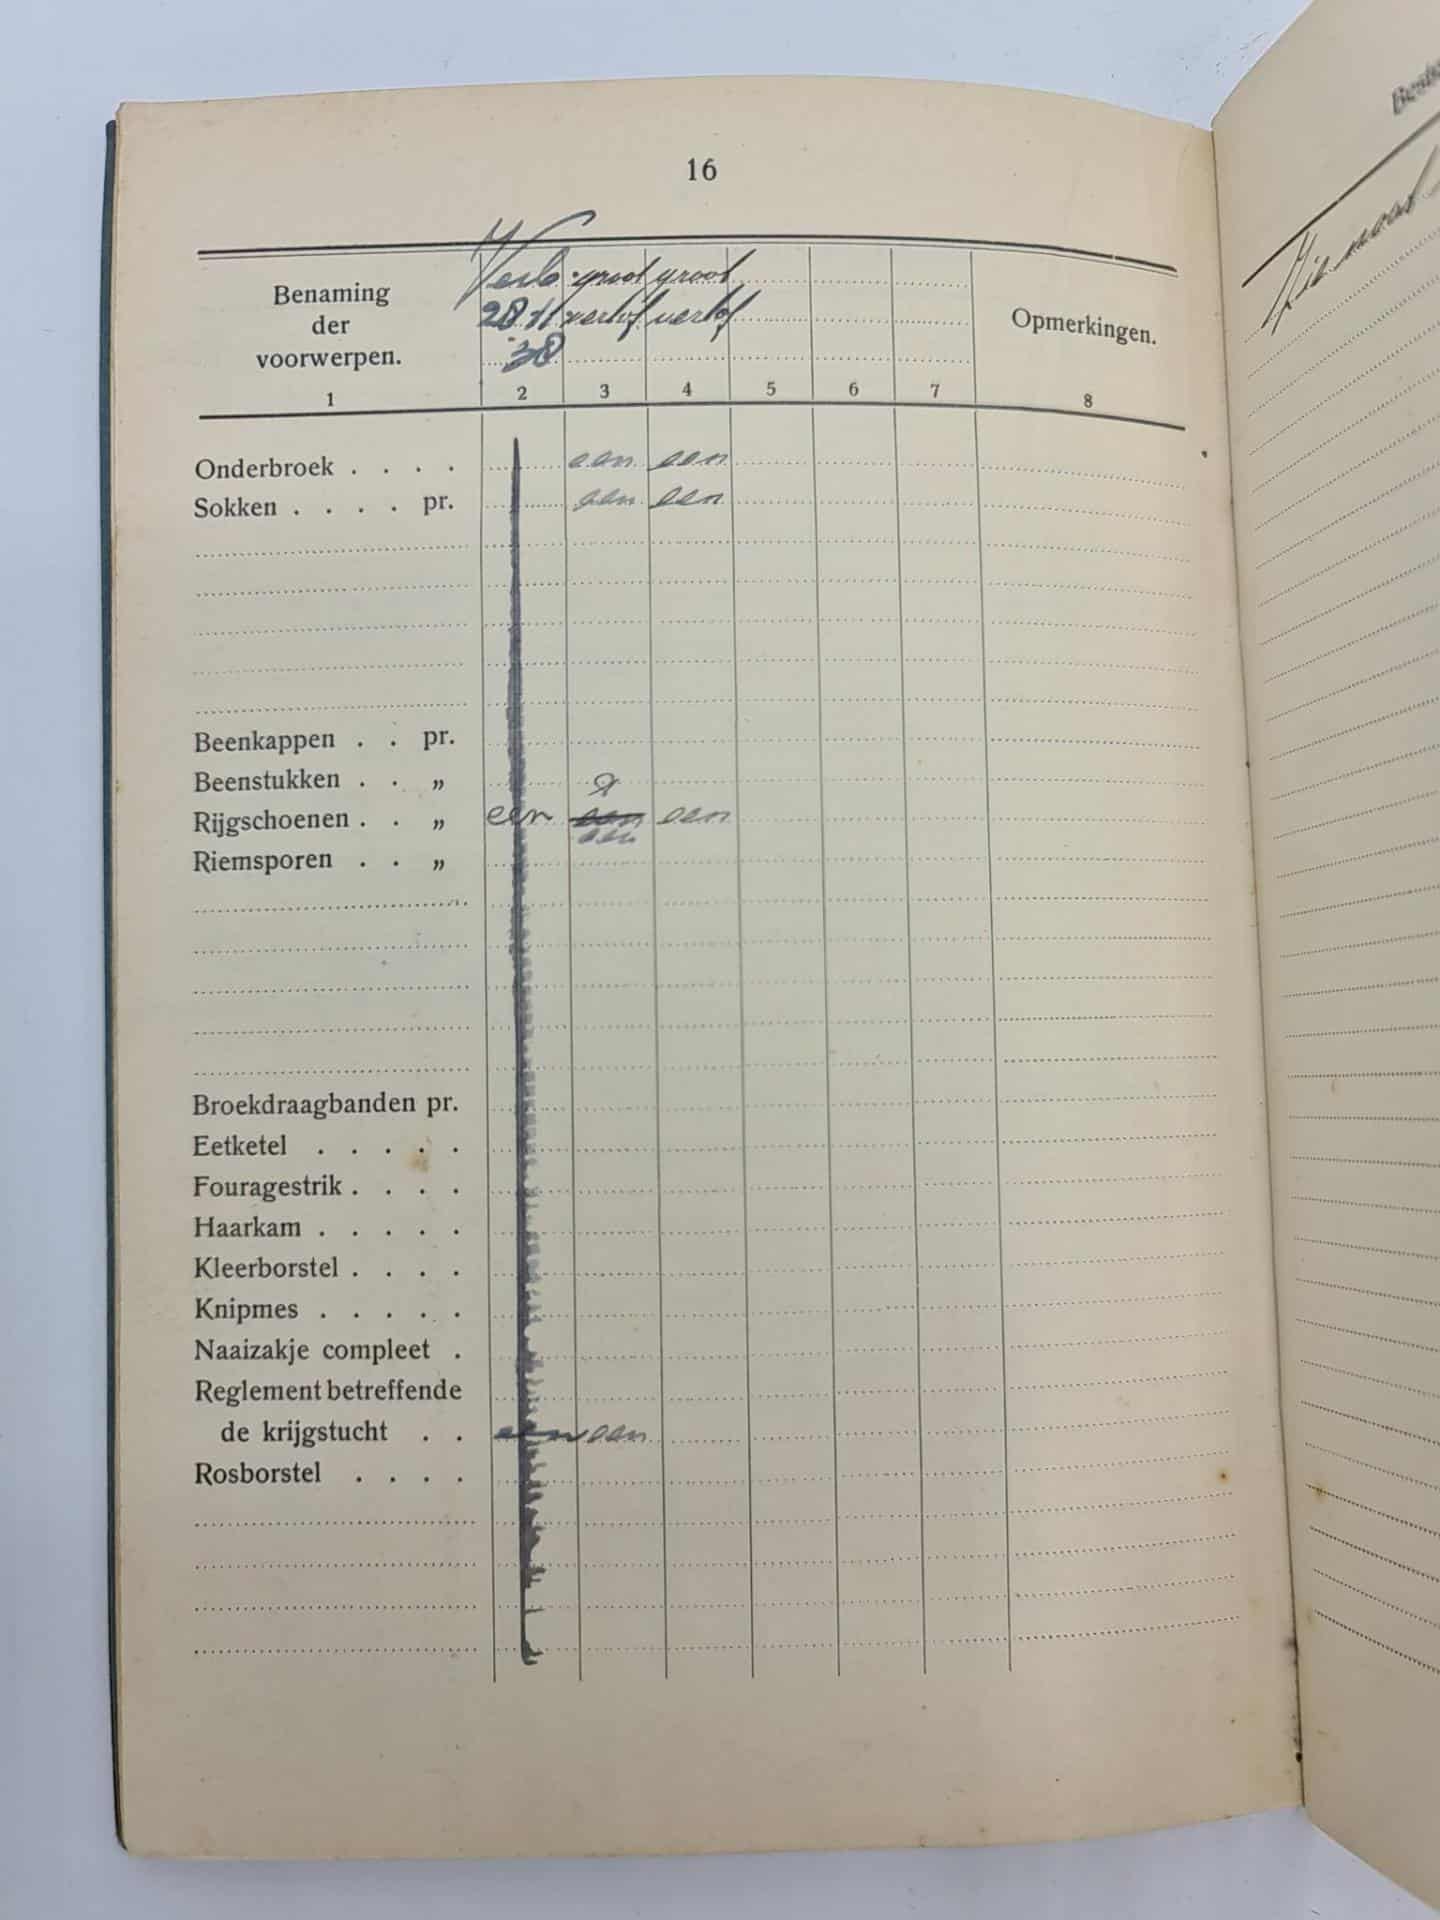 16
Benaming
der
voorwerpen.
Verlo groot groot
28 11 verlof verlof
38
Opmerkingen.
1 2 3 4 5 6 7 8
Onderbroek . . . . een een
Sokken . . . . pr. een een
Beenkappen . . pr.
Beenstukken . . „
Rijgschoenen . . „ een een een
een
Riemsporen . . „
Broekdraagbanden pr.
Eetketel . . . . .
Fouragestrik . . . .
Haarkam . . . . .
Kleerborstel . . . .
Knipmes . . . . .
Naaizakje compleet .
Reglement betreffende
de krijgstucht . . een een
Rosborstel . . . .